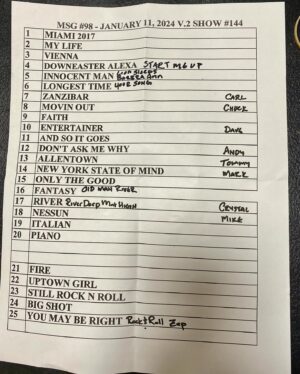 MSG #98 - JANUARY 11, 2024 V.2 SHOW #144
1 MIAMI 2017
2 MY LIFE
3 VIENNA
4 DOWNEASTER ALEXA START ME UP
5 INNOCENT MAN LION SLEEPS BARBARA ANN
6 LONGEST TIME YOUR SONG
7 ZANZIBAR CARL
8 MOVIN OUT CHUCK
9 FAITH
10 ENTERTAINER DAVE
11 AND SO IT GOES
12 DON'T ASK ME WHY ANDY
13 ALLENTOWN TOMMY
14 NEW YORK STATE OF MIND MARK
15 ONLY THE GOOD
16 FANTASY OLD MAN RIVER
17 RIVER River Deep Mtn High CRYSTAL
18 NESSUN MIKE
19 ITALIAN
20 PIANO
21 FIRE
22 UPTOWN GIRL
23 STILL ROCK N ROLL
24 BIG SHOT
25 YOU MAY BE RIGHT Rock + Roll Zep